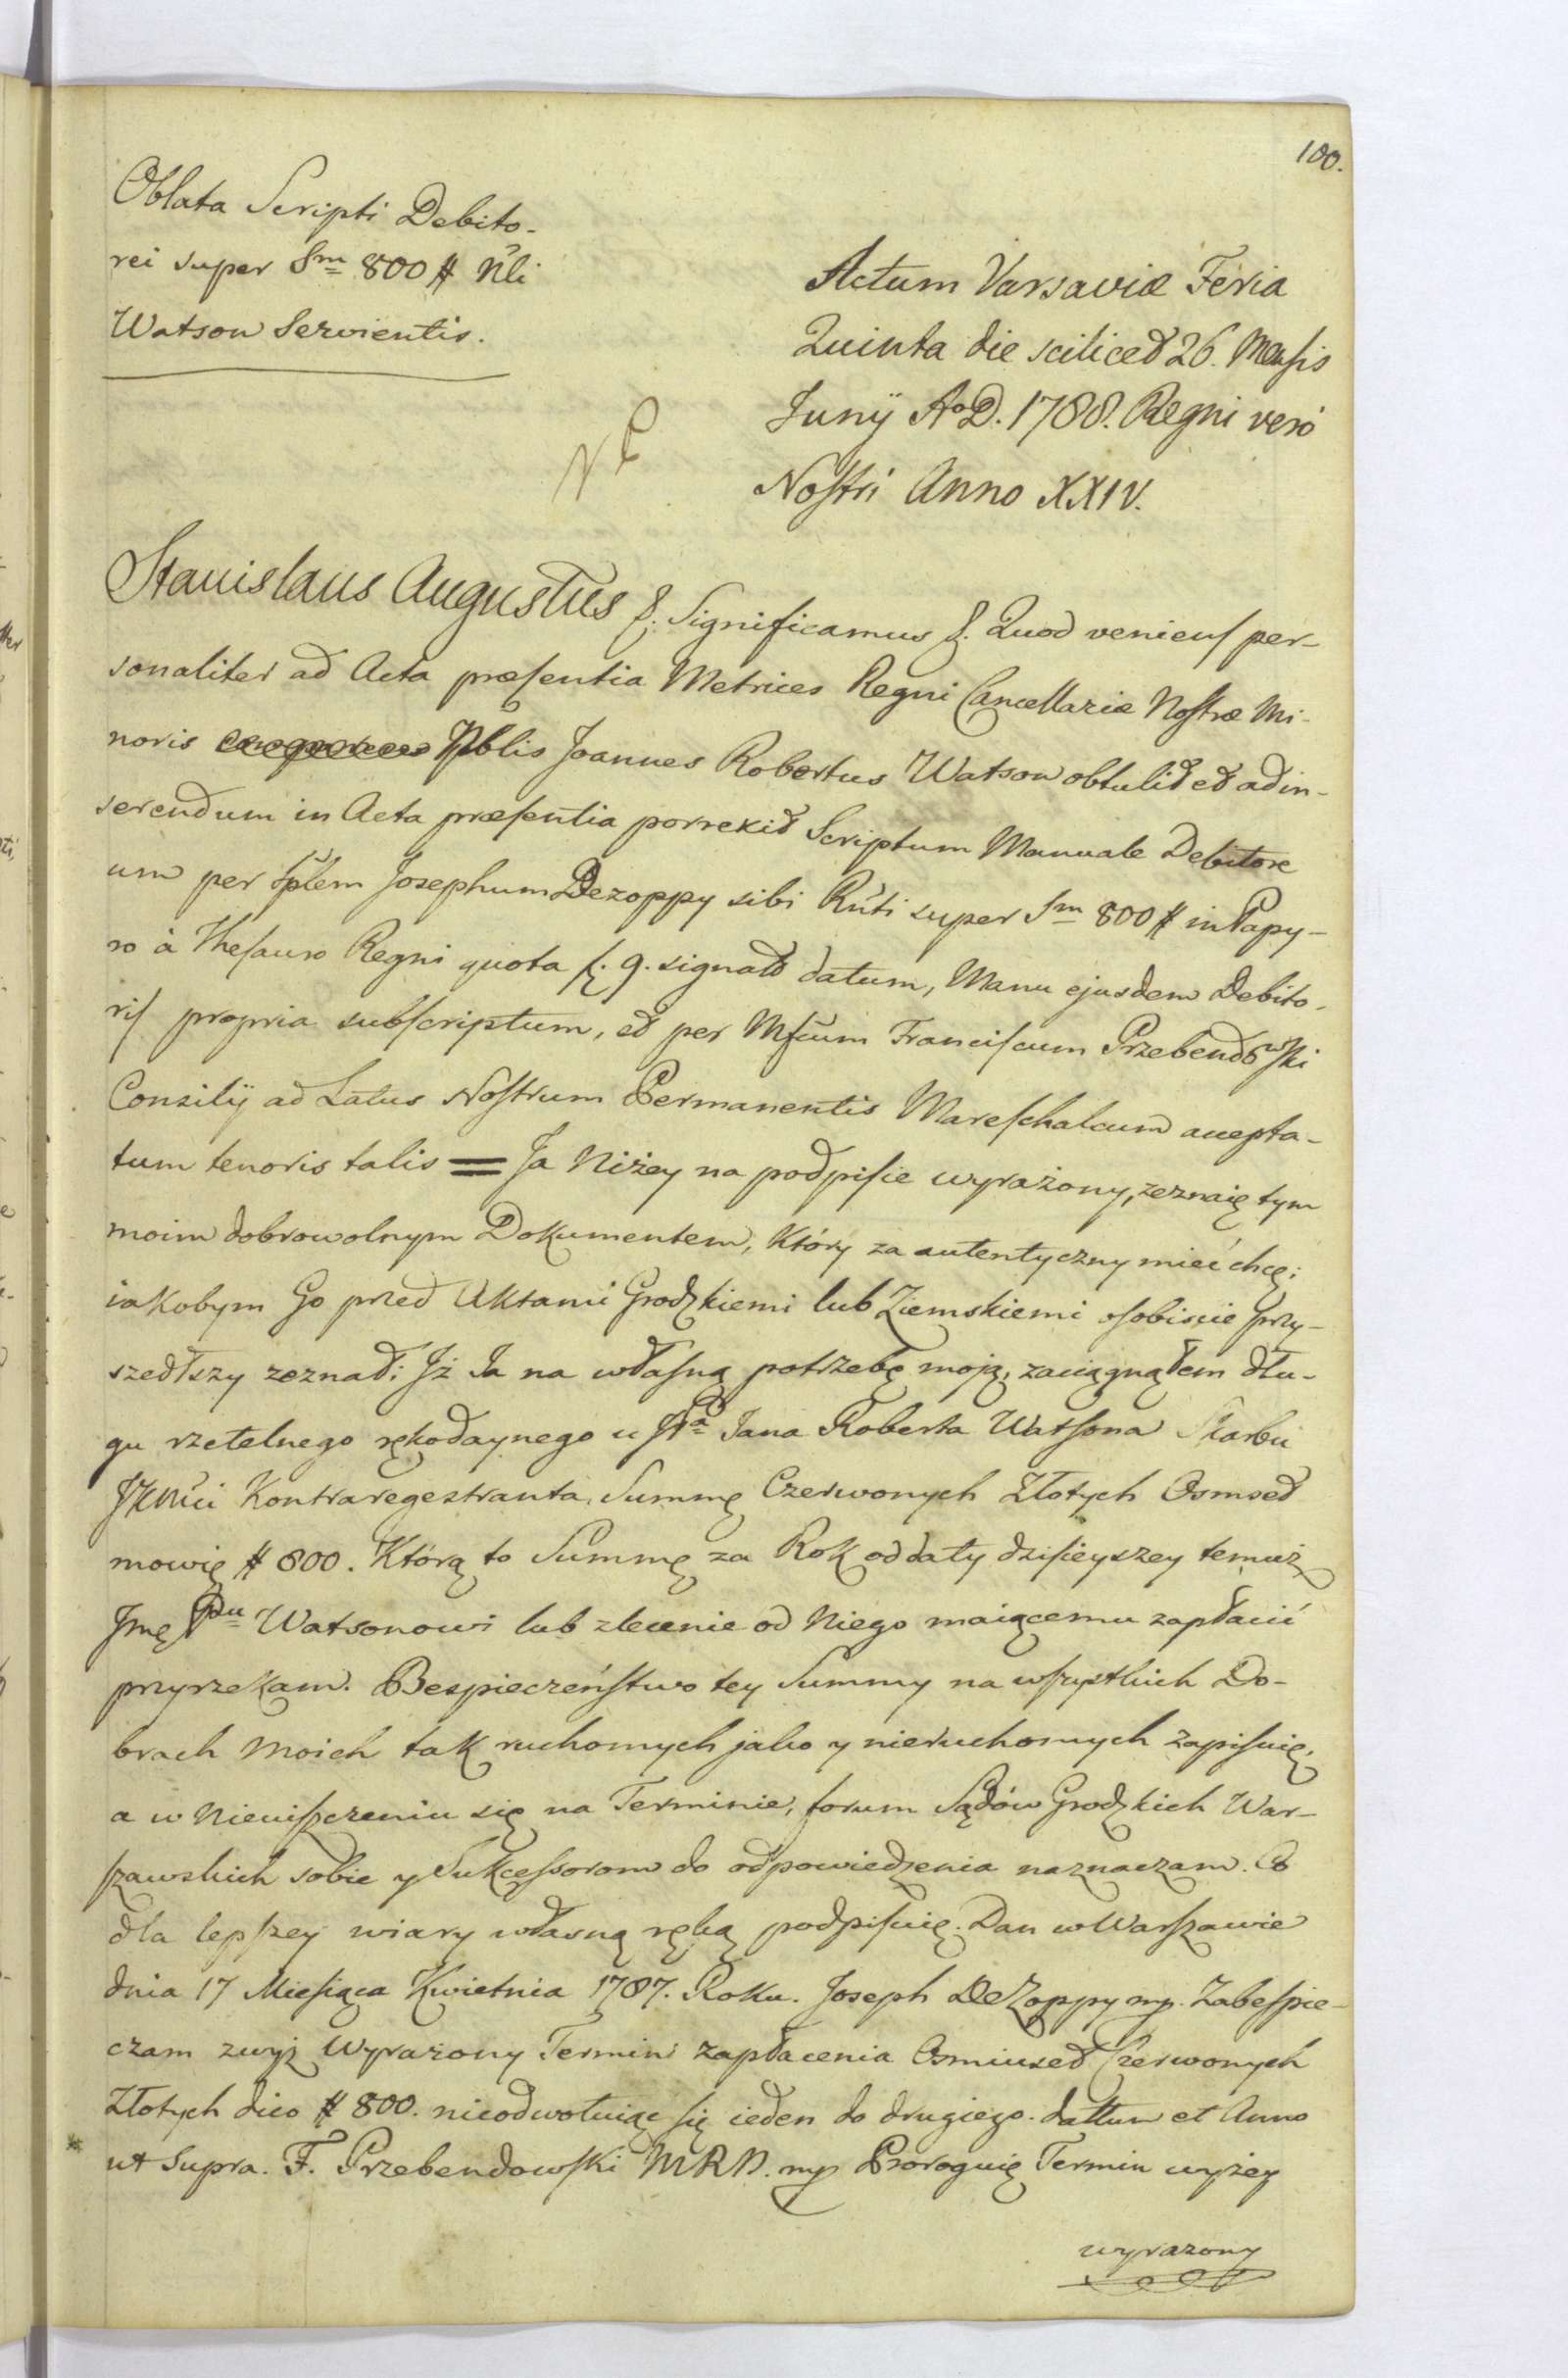 100.
Oblata Scripti Debito-
rei super Sm 800 # Nli
Watson Servientis.
Actum Varsaviæ Feria
Quinta die scilicet 26. Mensis
Junÿ AoD. 1788. Regni verò
Nostri Anno XXIV.
Stanislaus Augustus &. Significamus &. Quod veniens per-
sonaliter ad Acta præsentia Metrices Regni Cancellariæ Nostræ Mi-
noris Nblis Joannes Robertus Watson obtulit et ad in-
serendum in Acta præsentia porrexit Scriptum Manuale Debitore
um per Splem Josephum Dezoppy sibi Rńti super Sm 800 # in Papy-
ro à Thesauro Regni quota f. g. signato datum, Manu ejusdem Debito-
ris propria subscriptum, et per Mfcum Franciscum Przebendowski
Consilÿ ad Latus Nostrum Permanentis Mareschalcum accepta-
tum tenoris talis = Ja Niżey na podpisie wyrażony, zeznaię tym
moim dobrowolnym Dokumentem, Który za autentyczny mieć chcę;
iakobym Go przed Aktami Grodzkiemi lub Ziemskiemi osobiscie przy-
szedłszy zeznał: Jż Ja na własną potrzebę moją, zaciągnąłem dłu-
gu rzetelnego rękodaynego u JPa Jana Roberta Watsona Skarbu
JKMci Kontraregestranta, Summę Czerwonych Złotych Osmset
mowię # 800. Którą to Summę za Rok od daty dzisieyszey temuż
Jmę Pdu Watsonowi lub zlecenie od Niego maiącemu zapłacić
przyrzekam. Bespieczeństwo tey Summy na wszystkich Do-
brach Moich tak ruchomych jako y nieruchomych zapisuię,
a w Nieuiszczeniu się na Terminie, forum Sądów Grodzkich War-
szawskich sobie y Sukcessorom do odpowiedzenia naznaczam. Co
dla lepszey wiary własną ręką podpisuię. Dan w Warszawie
dnia 17 Miesiąca Kwietnia 1787. Roku. Joseph DeZoppy mp. Zabespie-
czam zwyż Wyrażony Termin zapłacenia Osmiuset Czerwonych
Złotych dico # 800. nieodwołuiąc się ieden do drugiego. dattum et Anno
ut Supra. F. Przebendowski MRN. mp Proroguię Termin wyżey
wyrazony